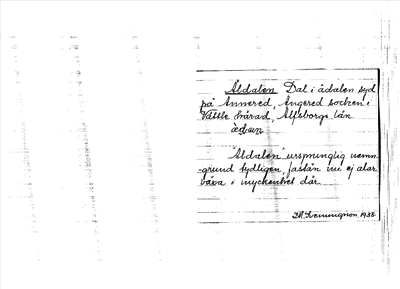 Åldalen Dal i ådalen syd
på Annered, Angered socken i
Vättle härad, Älfsborgs län
ådᴀn
"Åldalen" ursprunglig namn-
grund tydligen, fastän nu ej alar
växa i myckenhet där.
1938